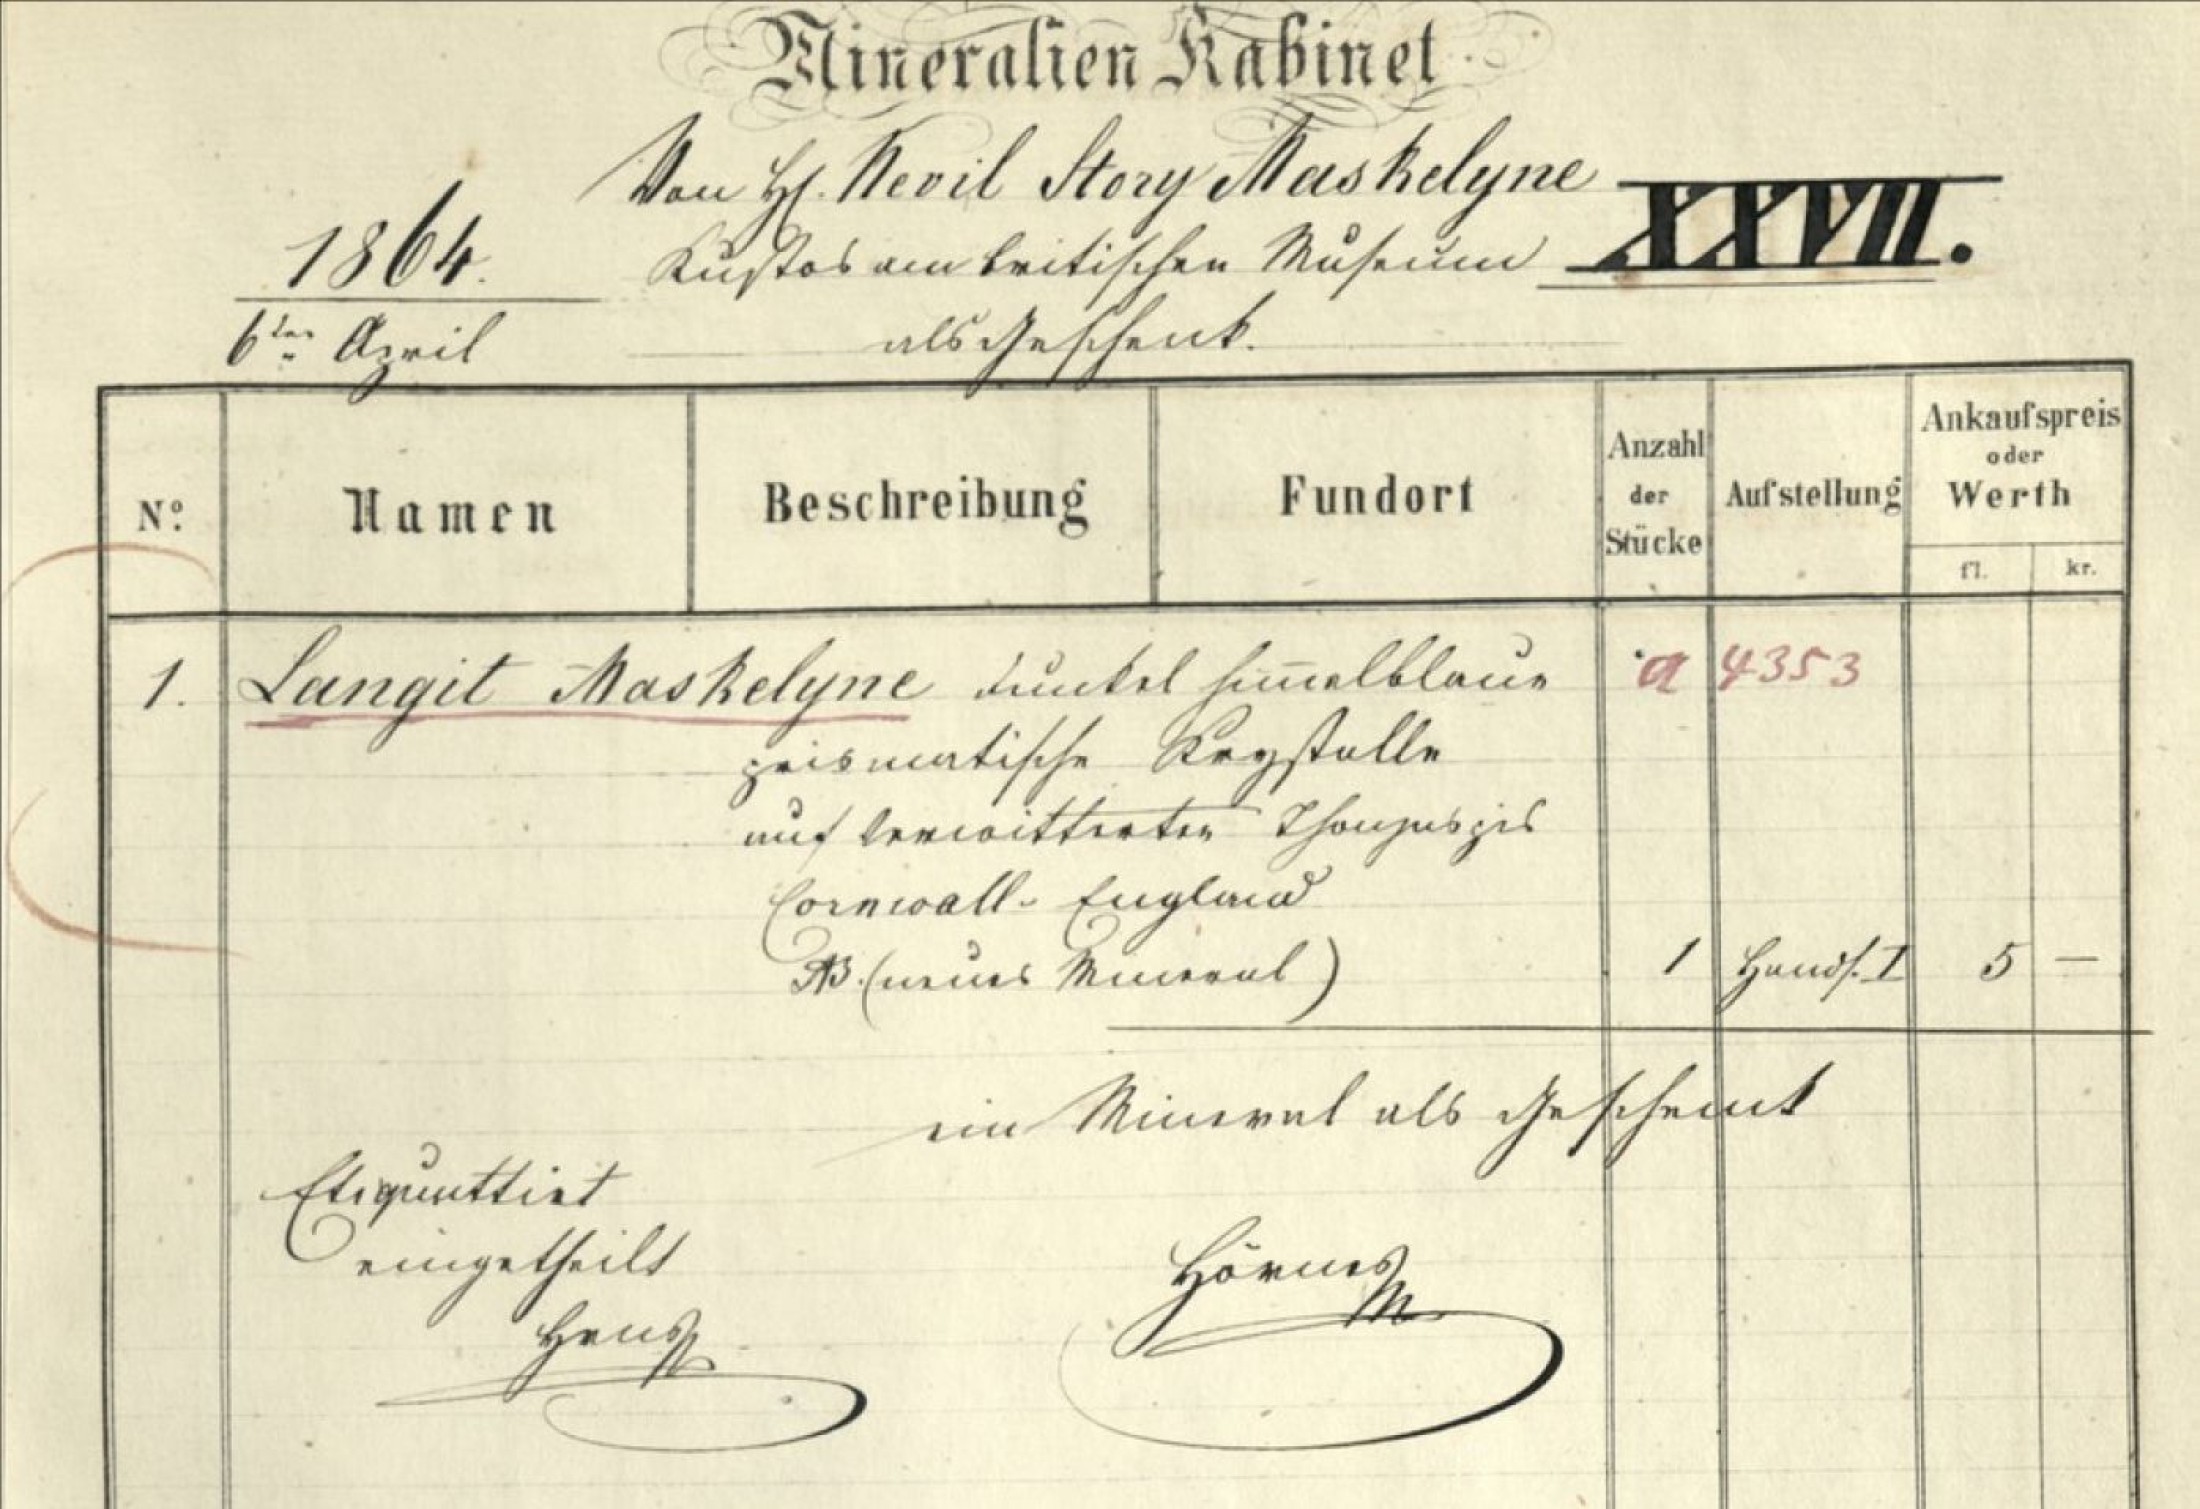 Mineralien Kabinet
Von H. Nevil Story Maskelyne XXVII.
1864. Kustos am britischen Museum
6ten April als Geschenk.
No. Namen Beschreibung Fundort Anzahl der Stücke Aufstellung Ankaufspreis oder Werth
fl. kr.
1. Langit Maskelyne dunkel himmelblaue a 4353
prismatische Krystalle
auf verwitterten
Cornwall - England
NB. (neues Mineral) 1 Hands. I 5 —
ein Mineral als Geschenk
Etiquettirt
eingetheilt
Hörnes